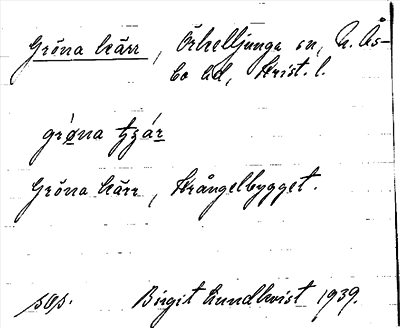 Gröna kärr, Örkelljunga sn, N. Ås-
bo hd, Krist. l.
grøna
Gröna kärr, Skrångelbygget.
sgs. Birgit Lundkvist 1939.